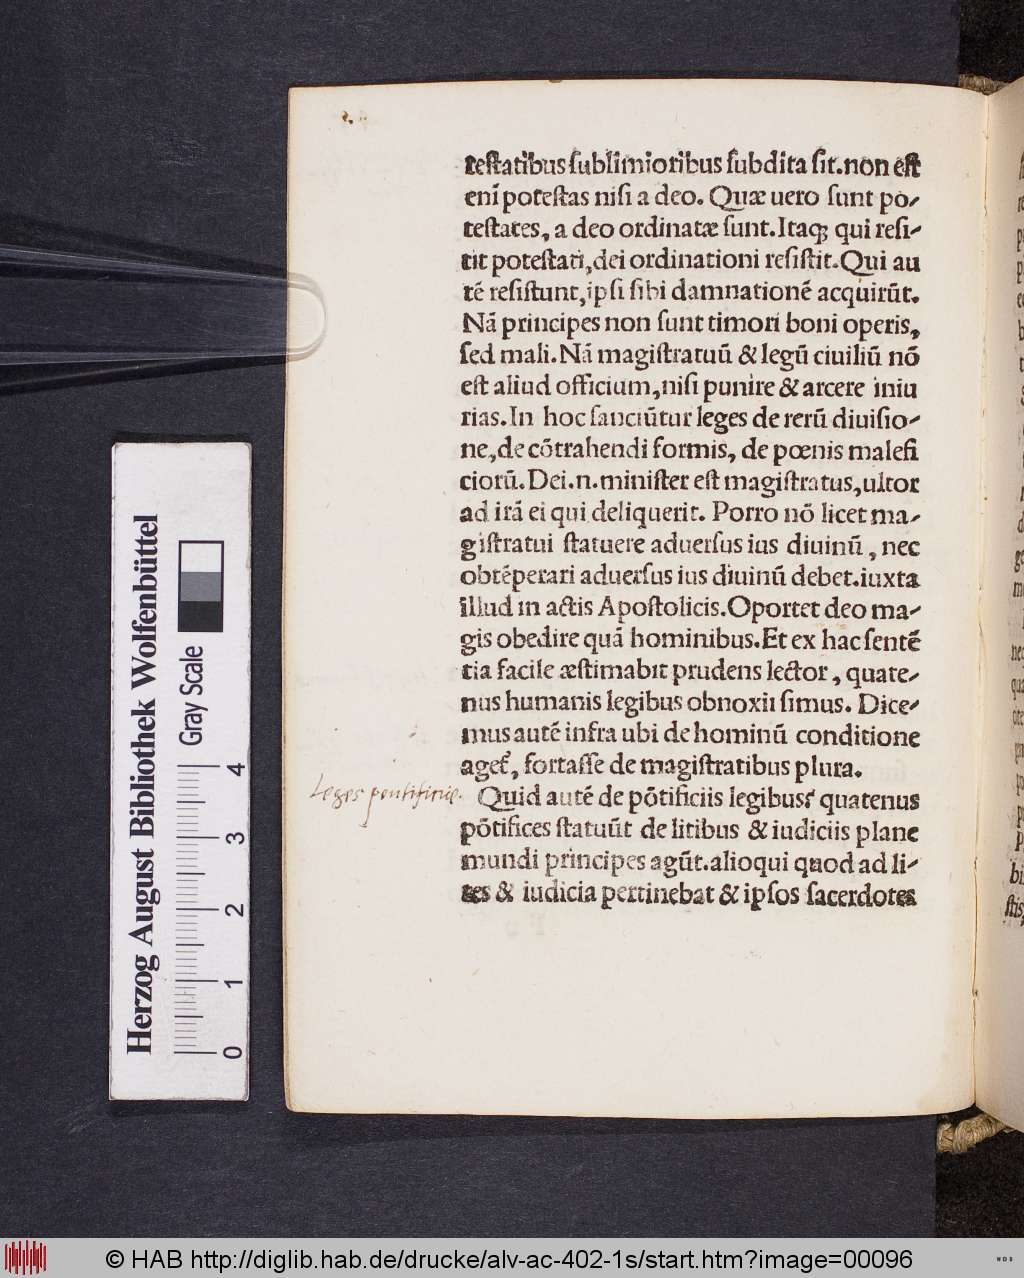 teſtatibus ſublimioribus ſubdita ſit.non eſt
enī poteſtas niſi a deo. Quæ uero ſunt po-
teſtates, a deo ordinatæ ſunt.Itaqꝫ qui reſi-
tit poteſtati,dei ordinationi reſiſtit.Qui au
tē reſiſtunt,ipſi ſibi damnationē acquirūt.
Nā principes non ſunt timori boni operis,
ſed mali.Nā magiſtratuū & legū ciuiliū nō
eſt aliud officium,niſi punire & arcere iniu
rias.In hoc ſanciūtur leges de rerū diuiſio-
ne,de cōtrahendi formis, de pœnis malefi
ciorū. Dei.n.miniſter eſt magiſtratus,ultor
ad irā ei qui deliquerit. Porro nō licet ma-
giſtratui ſtatuere aduerſus ius diuinū, nec
obtēperari aduerſus ius diuinū debet.iuxta
illud in actis Apoſtolicis.Oportet deo ma-
gis obedire quā hominibus.Et ex hac ſentē
tia facile æſtimabit prudens lector, quate-
nus humanis legibus obnoxii ſimus. Dice-
mus autē infra ubi de hominū conditione
aget̉, fortaſſe de magiſtratibus plura.
Leges pontificiae.
Quid autē de pōtificiis legibus? quatenus
pōtifices ſtatuūt de litibus & iudiciis plane
mundi principes agūt.alioqui quod ad li-
tes & iudicia pertinebat & ipſos ſacerdotes
Herzog August Bibliothek Wolfenbüttel
Gray Scale
0 1 2 3 4
© HAB http://diglib.hab.de/drucke/alv-ac-402-1s/start.htm?image=00096